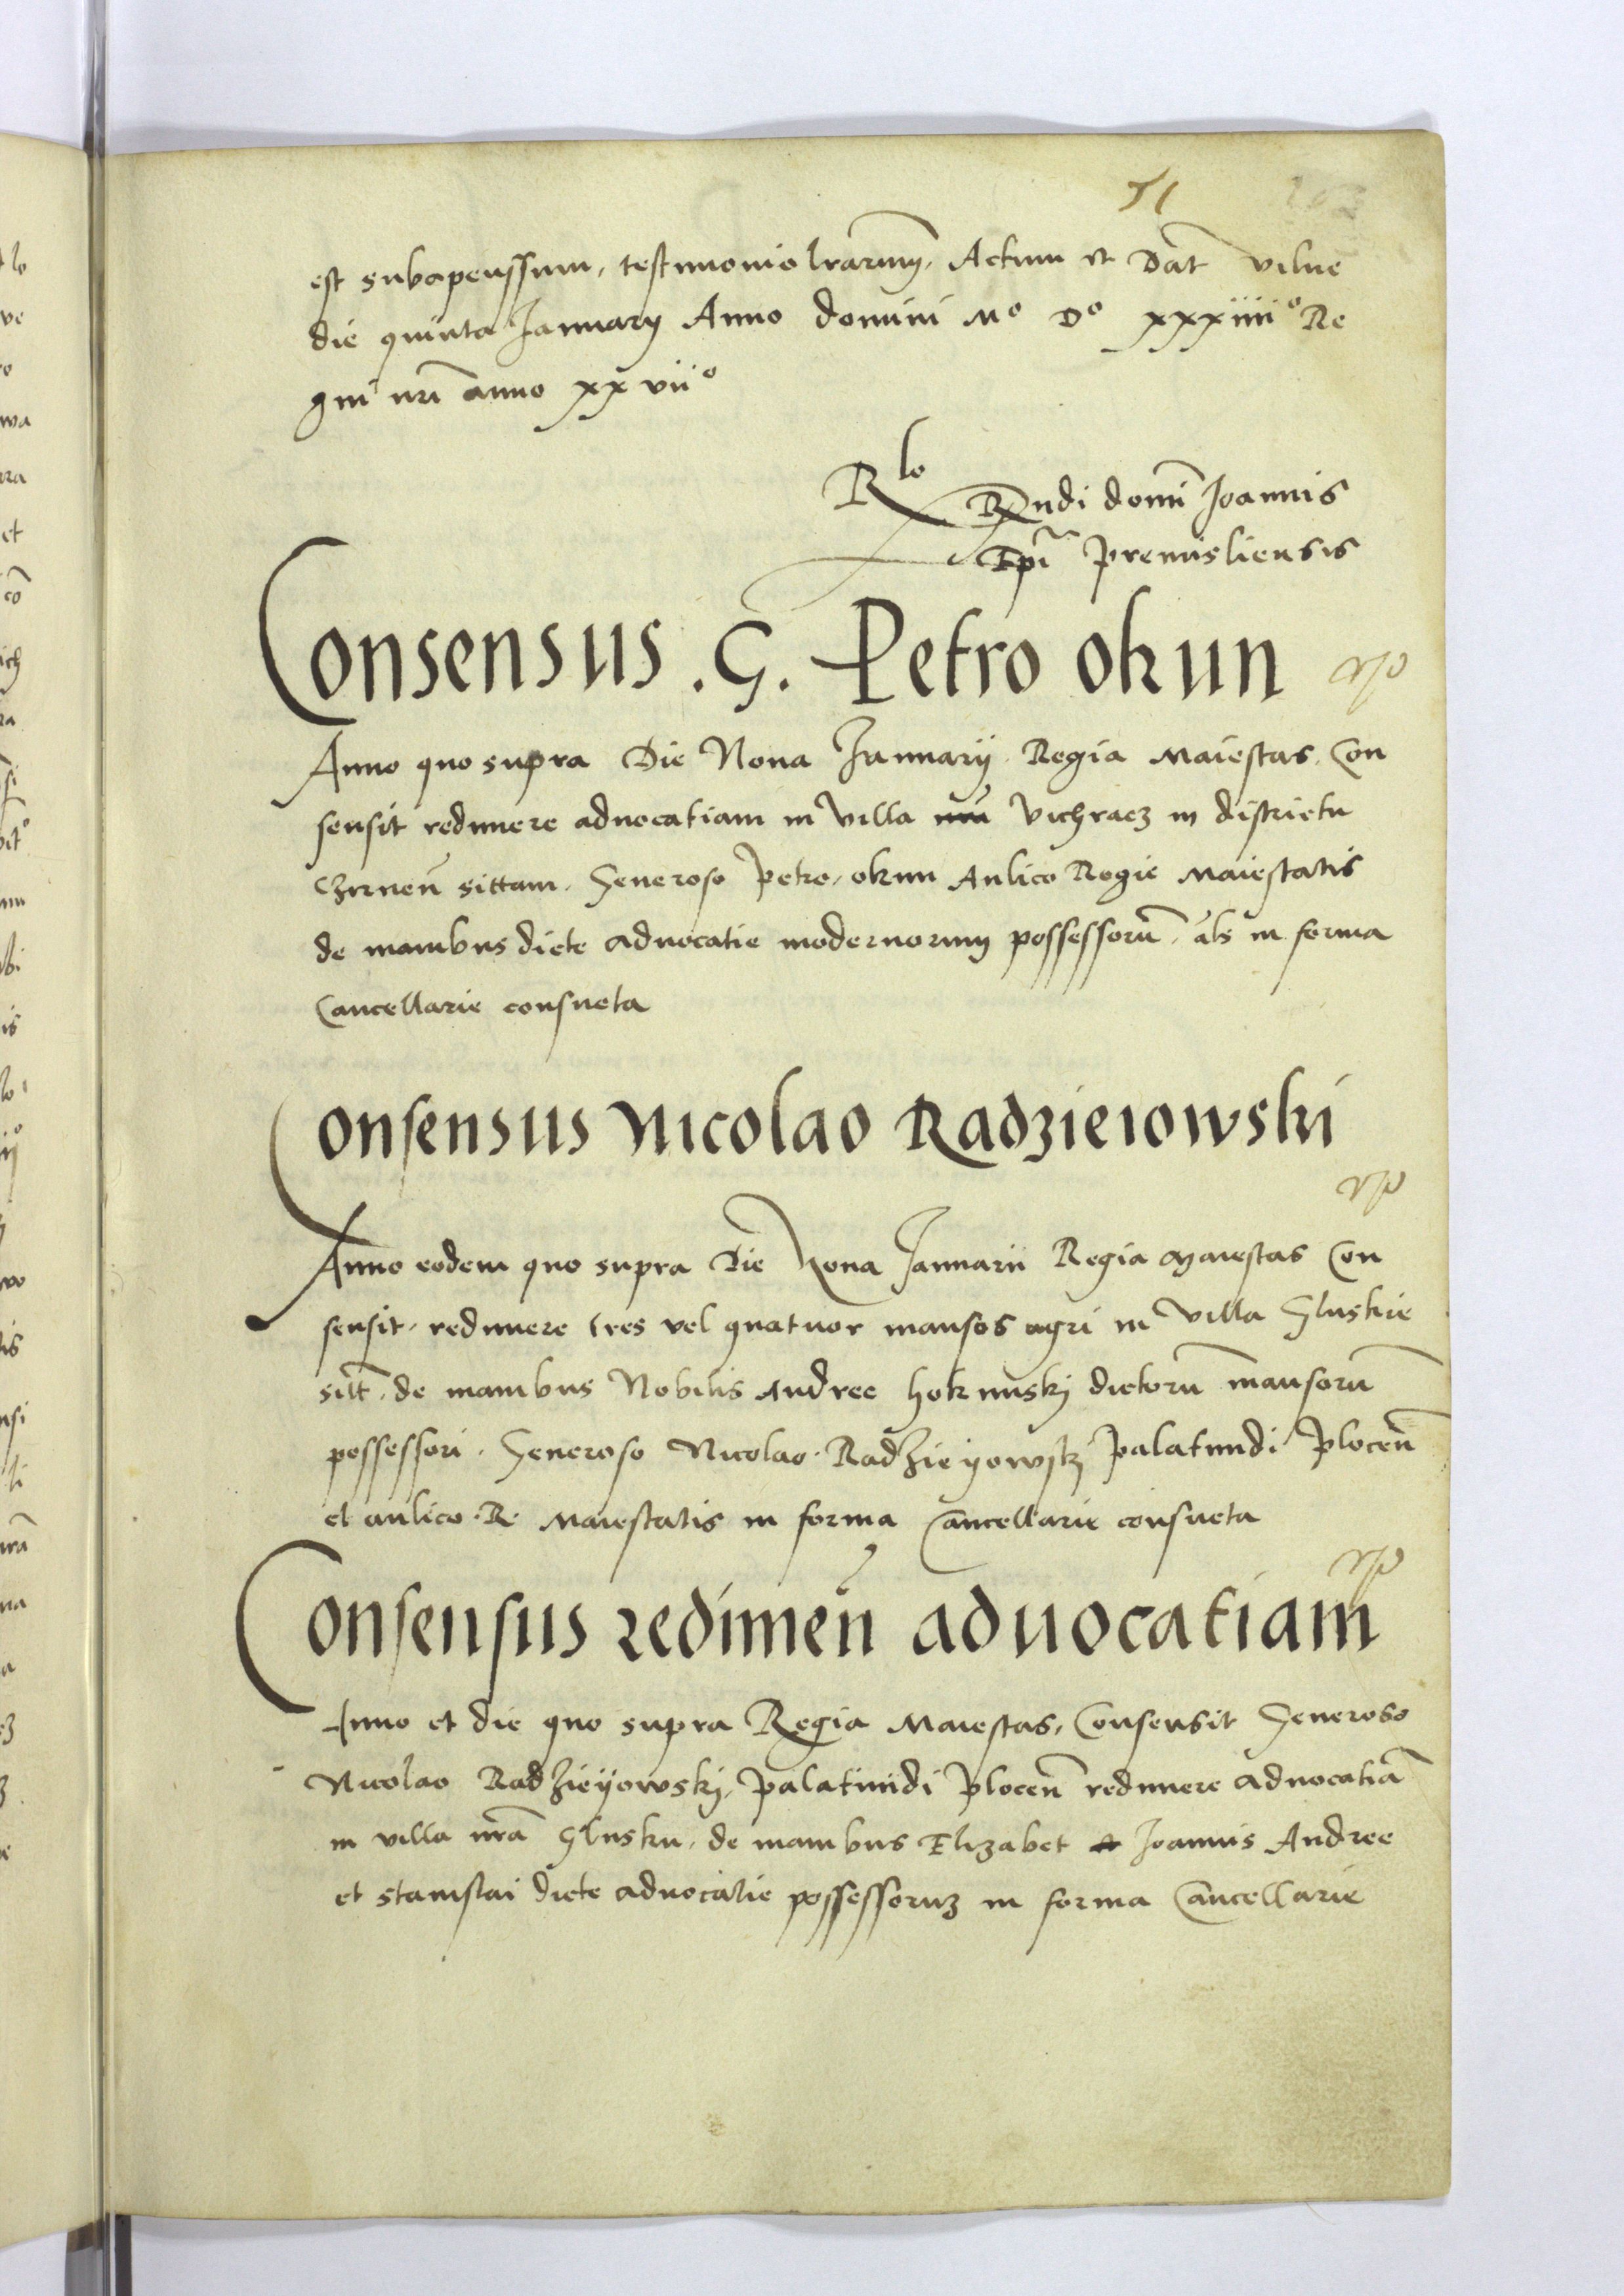 51
est subapenssum, testimonio lrarum, Actum et Dat Vilne
die quinta Januarij Anno domini Mº Dº xxxiiiiº Re
gni nri anno xxviiº
Rlo Rndi domi Joannis
Epi Premisliensis
Consensus .G. Petro okun
Anno quo supra Die Nona Januarij Regia Maiestas. Con
sensit redimere aduocatiam in villa Vichracz in districtu
Czrnen sittam. Generoso Petro okun Aulico Regie Maiestatis
de manibus dicte aduocatie modernorum possessorū. als in forma
Cancellarie consueta
Consensus Nicolao Radzieiowski
Anno eodem quo supra Die Nona Januarii Regia Maiestas Con
sensit redimere tres vel quatuor mansos agri in villa Gluskie
sitt. de manibus Nobilis Andree dictorū mansorū
possessori. Generoso Nicolao Radzieyowskj Palatinidi Plocen
et aulico R Maiestatis in forma Cancellarie consueta
Consensus redimen aduocatiam
Anno et die quo supra Regia Maiestas, Consensit Generoso
Nicolao Radzieyowskj, Palatinidi Plocen redimere aduocatiā
in villa nrā Glusku. de manibus Elizabet Joannis Andree
et stanislai dicte aduocatie possessorum in forma Cancellarie